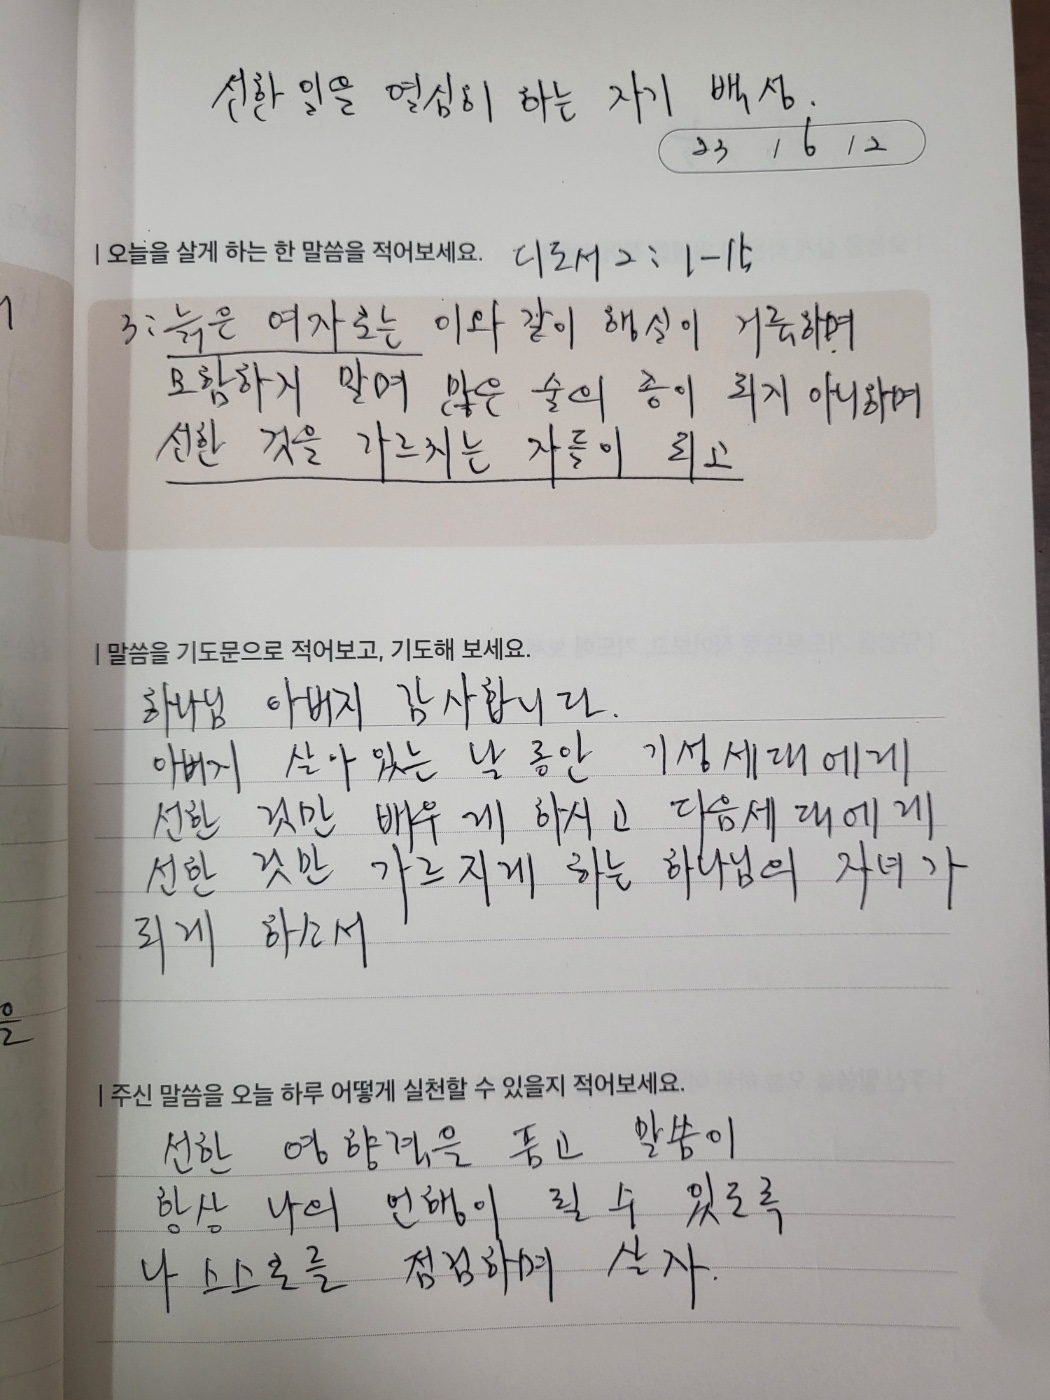 선한 일을 열심히 하는 자기 백성.
23 / 6 / 2
| 오늘을 살게 하는 한 말씀을 적어보세요. 디도서 2:1-15
3: 늙은 여자로는 이와 같이 행실이 거룩하며
모함하지 말며 많은 술의 종이 되지 아니하며
선한 것을 가르치는 자들이 되고
| 말씀을 기도문으로 적어보고, 기도해 보세요.
하나님 아버지 감사합니다.
아버지 살아 있는 날 동안 기성세대에게
선한 것만 배우게 하시고 다음세대에게
선한 것만 가르치게 하는 하나님의 자녀가
되게 하소서
을
| 주신 말씀을 오늘 하루 어떻게 실천할 수 있을지 적어보세요.
선한 영향력을 품고 말씀이
항상 나의 언행이 될 수 있도록
나 스스로를 점검하며 살자.